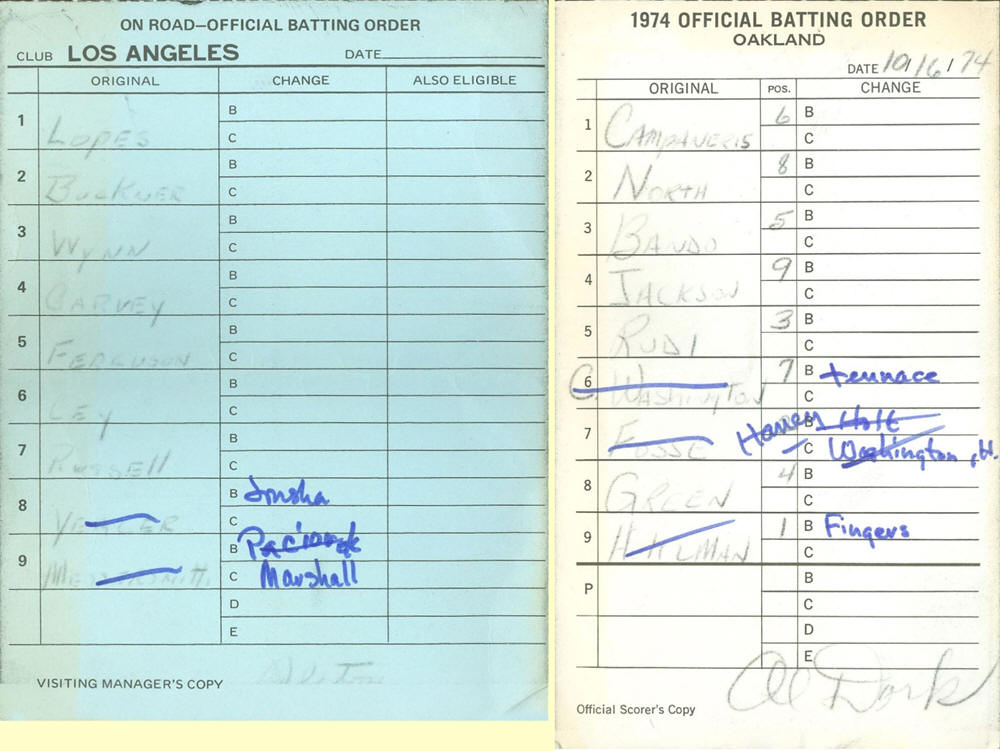 ON ROAD—OFFICIAL BATTING ORDER
CLUB LOS ANGELES DATE
ORIGINAL CHANGE ALSO ELIGIBLE
1 LOPES B
C
2 BUCKNER B
C
3 WYNN B
C
4 GARVEY B
C
5 FERGUSON B
C
6 CEY B
C
7 RUSSELL B
C
8 YEAGER B Joshua
C
9 MESSERSMITH B Paciorek
C Marshall
D
E
Alston
VISITING MANAGER'S COPY
1974 OFFICIAL BATTING ORDER
OAKLAND
DATE 10/16/74
ORIGINAL POS. CHANGE
1 CAMPANERIS 6 B
C
2 NORTH 8 B
C
3 BANDO 5 B
C
4 JACKSON 9 B
C
5 RUDI 3 B
C
6 C. WASHINGTON 7 B tennace
C
7 FOSSE B Holt
Haney C Washington, H.
8 GREEN 4 B
C
9 HOLTZMAN 1 B Fingers
C
P B
C
D
E
Al Dark
Official Scorer's Copy